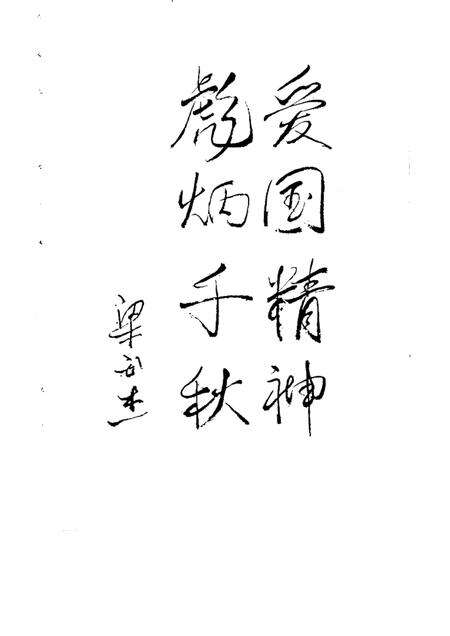 爱国精神
彪炳千秋
梁
杰